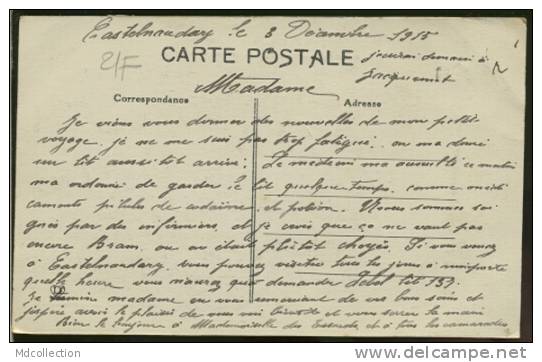 Castelnaudary le 3 Décembre 1915
CARTE POSTALE
j'écrirai demain à
Jacqueminot
Madame
Correspondance
Adresse
Je viens vous donner des nouvelles de mon petit
voyage, je ne me suis pas trop fatigué, on m'a donné
un lit aussitôt arrivé; Le médecin m'a ausculté ce matin
m'a ordonné de garder le lit quelque temps, comme médi
caments pilules de codéïne, et potion. Nous sommes soi
gnés par des infirmiers, et je crois que ça ne vaut pas
encore Bram, où on était plutôt choyés. Si vous venez
à Castelnaudary, vous pouvez visiter tous les jours à n'importe
quelle heure vous n'aurez qu'à demander lit 153.
Je termine madame en vous remerciant de vos bons soins et
j'espère avoir le plaisir de vous voir bientôt et vous serrer la main
Bien le bonjour à Mademoiselle et à tous les camarades
Mdcollection
www.delcampe.net